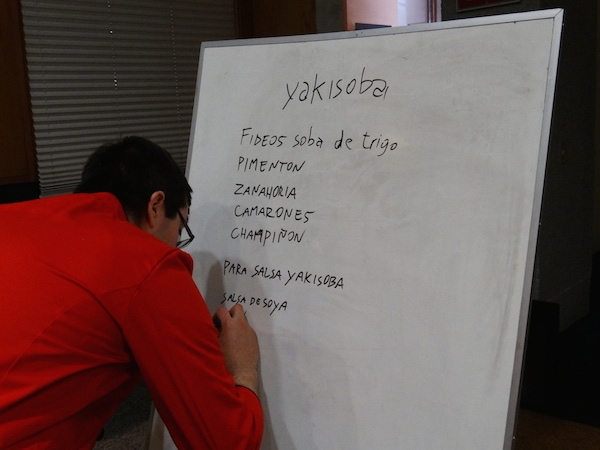 yakisoba
FIDEOS soba de trigo
PIMENTON
ZANAHORIA
CAMARONES
CHAMPIÑON
PARA SALSA YAKISOBA
SALSA DE SOYA